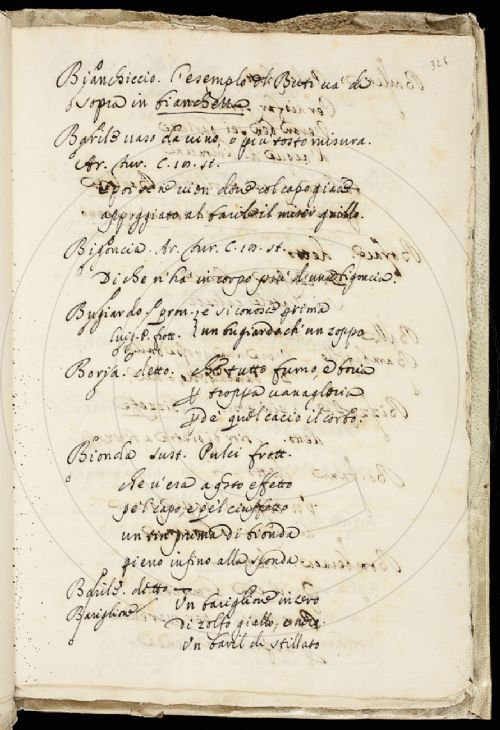 326
Bianchiccio. L'esemplo del Buti va' di
sopra in bianchetta
Barile vaso da vino, o piu tosto misura.
Ar. fur. C. 14. st.
e poi sene vien dove col capo giace
appoggiato al barile il miser grillo.
Bigoncia. Ar. fur. C. 14. st.
Di che n'ha' in corpo piu' d'una bigoncia.
Bugiardo. prov. e si conosce prima
Luig. P. frott. un bugiardo ch'un zoppo
Boria. detto. ch'è tutto fumo, e boria
troppa vanagloria
quel cacio il corbo.
Bionda sust. Pulci frott.
che v'era a posto effetto
pe'l capo, e pe'l ciuffetto
un prima di bionda
pieno infino alla sponda
Barile. detto.
Bariglione Un bariglione intero
Di zolfo giallo, e nero.
Un baril di stillato